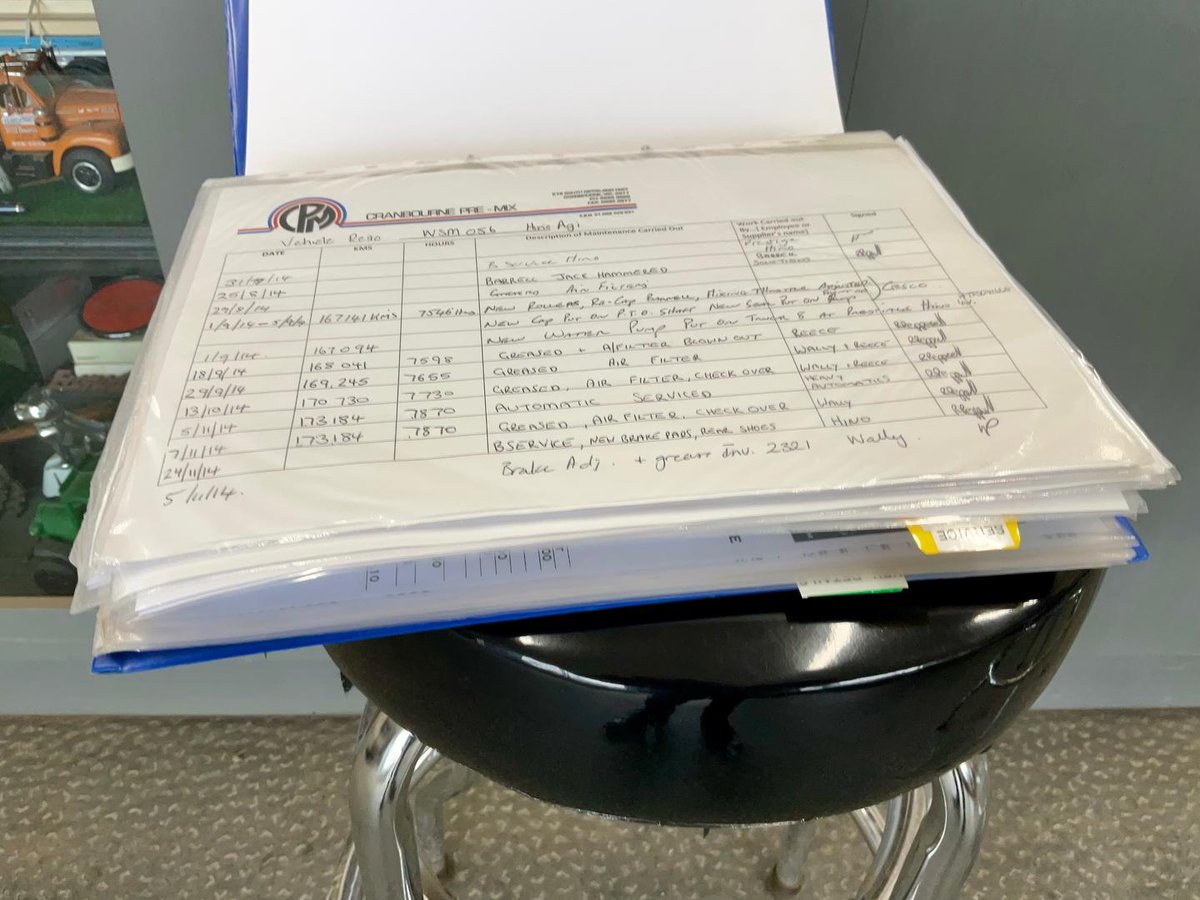 CPM CRANBOURNE PRE-MIX
Vehicle Rego WSM 056 Hino Agi
DATE KMS HOURS Description of Maintenance Carried Out Work Carried out By...( Employee or Supplier's name) Signed
B SERVICE HINO PRESTIGE HINO
BARRELL JACK HAMMERED BARREL SOLUTIONS
25/8/14 GREASED AIR FILTERS
29/8/14 NEW ROLLERS, RE-CAP FUNNELL, MIXING THROTTLE ADJUSTED
167141 Kms 7546 Hrs NEW CAP PUT ON P.T.O. SHAFT NEW SEAT PUT ON
NEW WATER PUMP PUT ON TRUCK 8 AT PRESTIGE HINO
1/9/14. 167094 GREASED + A/FILTER BLOWN OUT REECE
18/9/14 168041 7598 GREASED AIR FILTER WALLY & REECE
29/9/14 169,245 7655 GREASED, AIR FILTER, CHECK OVER WALLY & REECE
13/10/14 170730 7730 AUTOMATIC SERVICED HEAVY AUTOMATICS
5/11/14 173184 7870 GREASED, AIR FILTER, CHECK OVER WALLY
7/11/14 173184 7870 B SERVICE, NEW BRAKE PADS, REAR SHOES HINO
24/11/14 Brake Adj. + grease Inv. 2321 Wally
5/11/14.
SERVICE